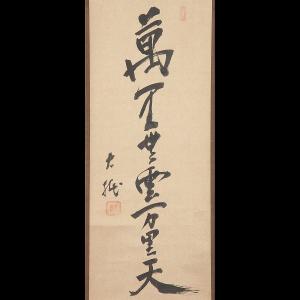 萬里無雲万里天
大綱